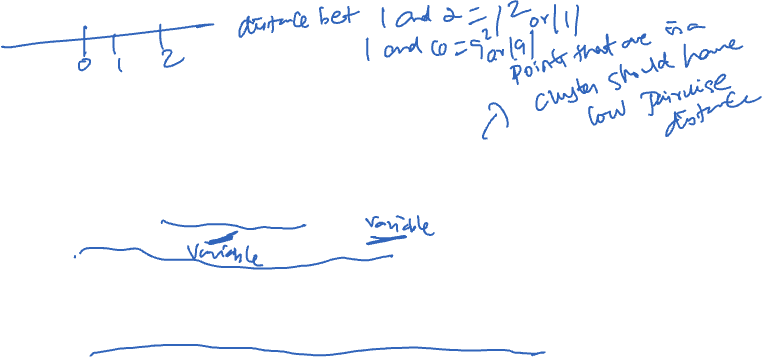 distance best 1 and 2 = 1² or |1|
1 and 10 = 9² or |9|
0 1 2
Points that are in a
cluster should have
low pairwise
distance
variable
variable